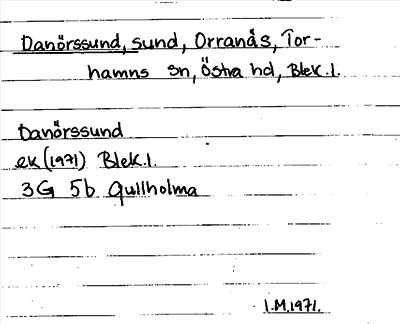 Danörssund, sund, Orranäs, Tor-
hamns sn, Östra hd, Blek.l.
Danörssund
ek (1971) Blek.l.
3G 5b Gullholma
I.M.1971.